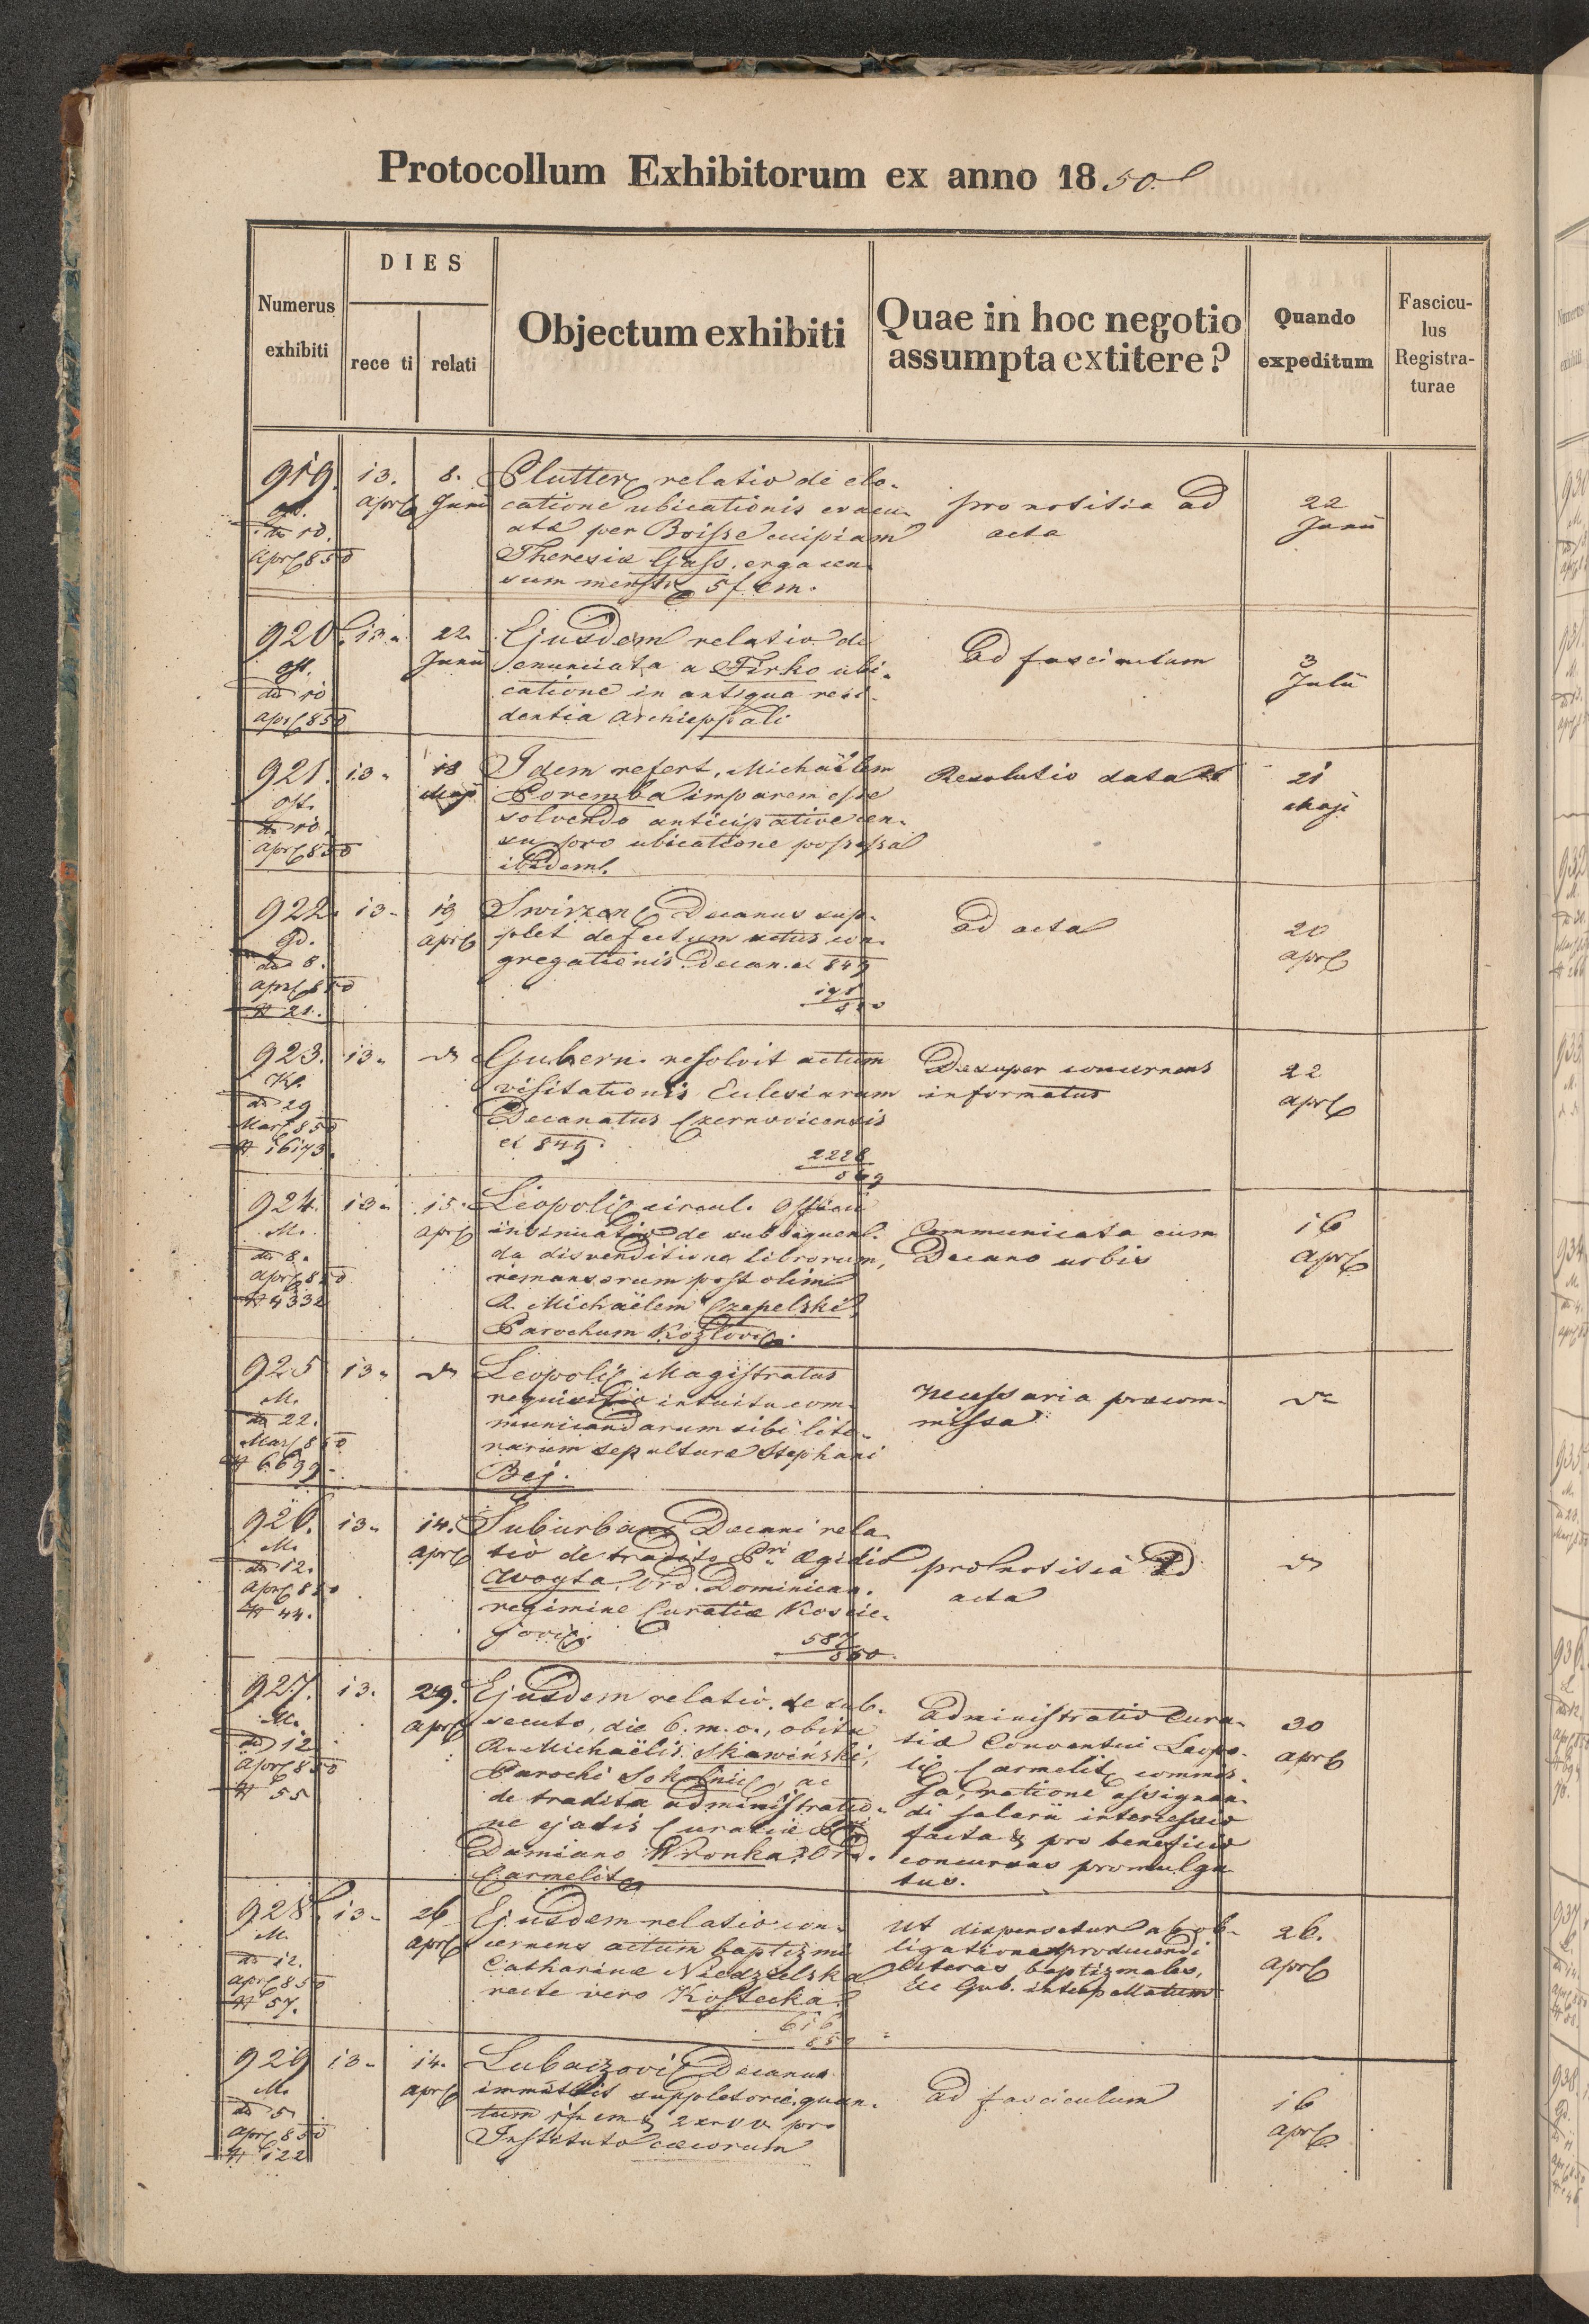 Protocollum Exhibitorum ex anno 1850.
Numerus
exhibiti
DIES
rece ti
relati
Objectum exhibiti
Quae in hoc negotio
assumpta extitere?
Quando
expeditum
Fascicu-
lus
Registra-
turae
919.
de 10.
Apr 850
13.
Apr
8.
Junii
Plutter relatio de elo-
catione ubicationis evacu-
atæ per Boisse cuipiam
Theresiæ Gass. erga cen-
sum menstr 5 f cm.
pro notitia ad
acta
22
Junii
920.
de 10
Apr 850
13.
22.
Junii
Ejusdem relatio de
enunciata a Firko ubi-
catione in antiqua resi-
dentia Archieppali
Ad fasciculum
3
Julii
921.
de 10.
Apr 850
13.
18
Maji
Idem refert, Michaëlem
Poremba imparem esse
solvendo anticipative cen-
su pro ubicatione possessa
ibidem.
Resolutio data
21
Maji
922.
de 8.
Apr 850
N 21.
13.
19
Apr
Swirzen Decanus sup-
plet defectum actus con-
gregationis Decan. ex 849
ad acta
20
Apr
923.
de 29
Mar 850
N 16173.
13.
do
Gubern. resolvit actum
visitationis Ecclesiarum
Decanatus Czernovicensis
ex 849.
2228
849
Desuper concernens
informatus
22
Apr
924.
M.
de 8.
Apr 850
N 4332
13.
15.
Apr
Leopoli circul. Officii
insinuatio de subsequen-
da disvenditione librorum,
remansorum post olim
R. Michaëlem Czepelski
Parochum Kozlov.
Communicata cum
Decano urbis
16
Apr
925
M.
de 22.
Mar 850
N 6699.
13.
do
Leopoli Magistratus
requisitio intuitu com-
municandarum sibi lite-
rarum sepulturæ Stephani
Bej.
Necessaria præcom-
missa
do
926.
M.
de 12.
Apr 850
N 44.
13.
14.
Apr
Suburban Decani rela-
tio de tradito Pri Ægidio
Woyta, Ord. Dominican.
regimine Curatiæ Koscie-
jov.
587
850
pro notitia ad
acta
do
927.
M.
de 12
Apr 850
N 55
13.
29.
Apr
Ejusdem relatio de sub-
secuto, die 6. m. c., obitu
R. Michaëlis Skawiński,
Parochi Sokolnic, ac
de tradita administratio-
ne ejatis Curatiæ Pri
Damiano Wronka, Ord.
Carmelit
Administratio Cura-
tiæ Conventui Leopo-
li Carmelit commis-
sa, ratione assignan-
di salarii intercessio
facta & pro beneficio
concursus promulga-
tus.
30
Apr
928.
M.
de 12.
Apr 850
N 57.
13.
26
Apr
Ejusdem relatio con-
cernens actum baptizmi
Catharinæ Niedzielska
recte vero Kostecka.
616
850
Ut dispensetur ab ob-
ligatione producendi
literas baptizmales,
Ex Gub. interpellatum
26.
Apr
929
M.
de 5
Apr 850
N 122
13.
14.
Apr
Lubaczovi Decanus
immittit suppletorie quan-
tum 1 f cm & 2 xr vv pro
Instituto cæcorum
ad fasciculum
16
Apr